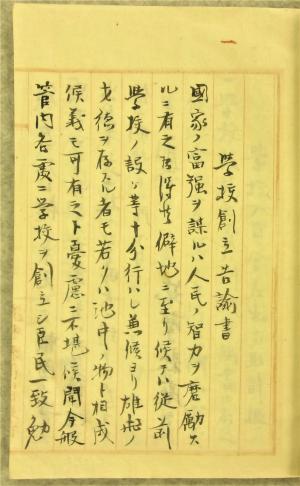 一
學校創立告諭書
國家ノ富强ヲ謀ルハ人民ノ智力ヲ磨勵ス
ルニ有之候得共僻地ニ至リ候テハ従前
學校ノ設ケ等十分行ハレ兼候ヨリ雄
才徳ヲ存スル者モ若クハ池中ノ物ト相成
候義モ可有之ト憂慮ニ不堪候間今般
管内各處ニ学校ヲ創立シ臣民一致勉